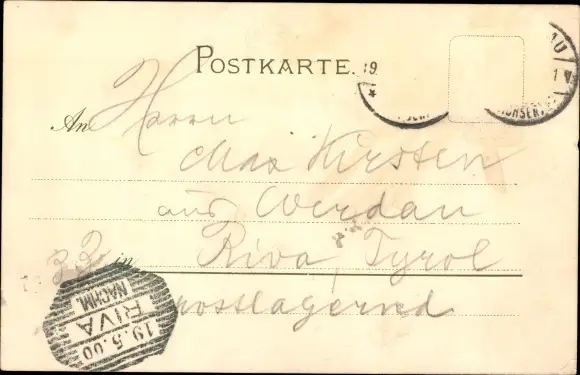 POSTKARTE.
19
AU
1 V
An Herrn
Max Kirsten
aus Werdau
z. Z. in Riva, Tyrol
postlagernd
19.5.00
RIVA
NACHM.